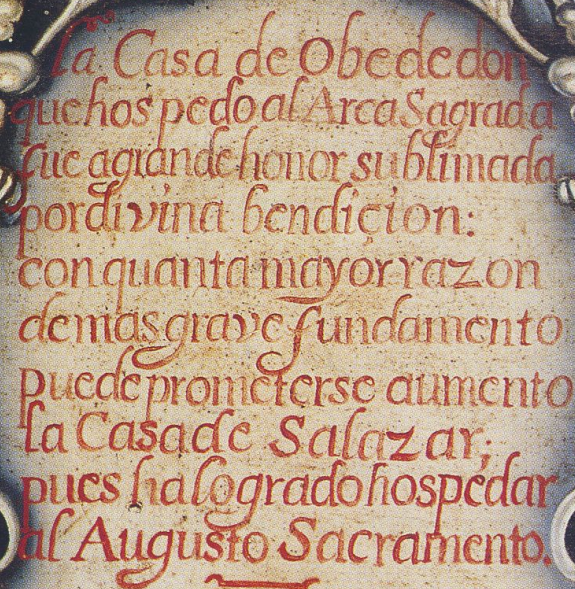 La Casa de Obededon
que hospedo al Arca Sagrada
fue a grande honor sublimada
por divina bendiçion:
con quanta mayor razon
de mas grave fundamento
puede prometerse aumento
la Casa de Salazar;
pues ha logrado hospedar
al Augusto Sacramento.